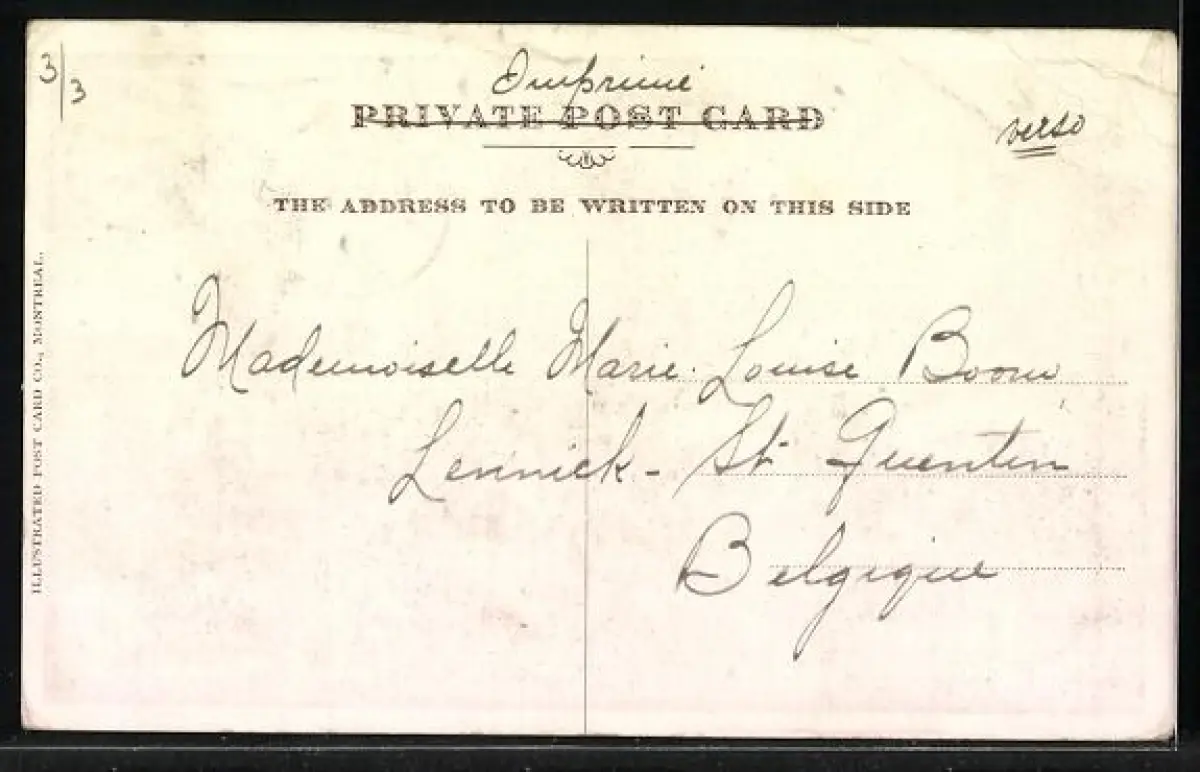 3/3
Imprimé
PRIVATE POST CARD
verso
THE ADDRESS TO BE WRITTEN ON THIS SIDE
Mademoiselle Marie-Louise Boom
Lennick-St Quentin
Belgique
ILLUSTRATED POST CARD CO., MONTREAL.